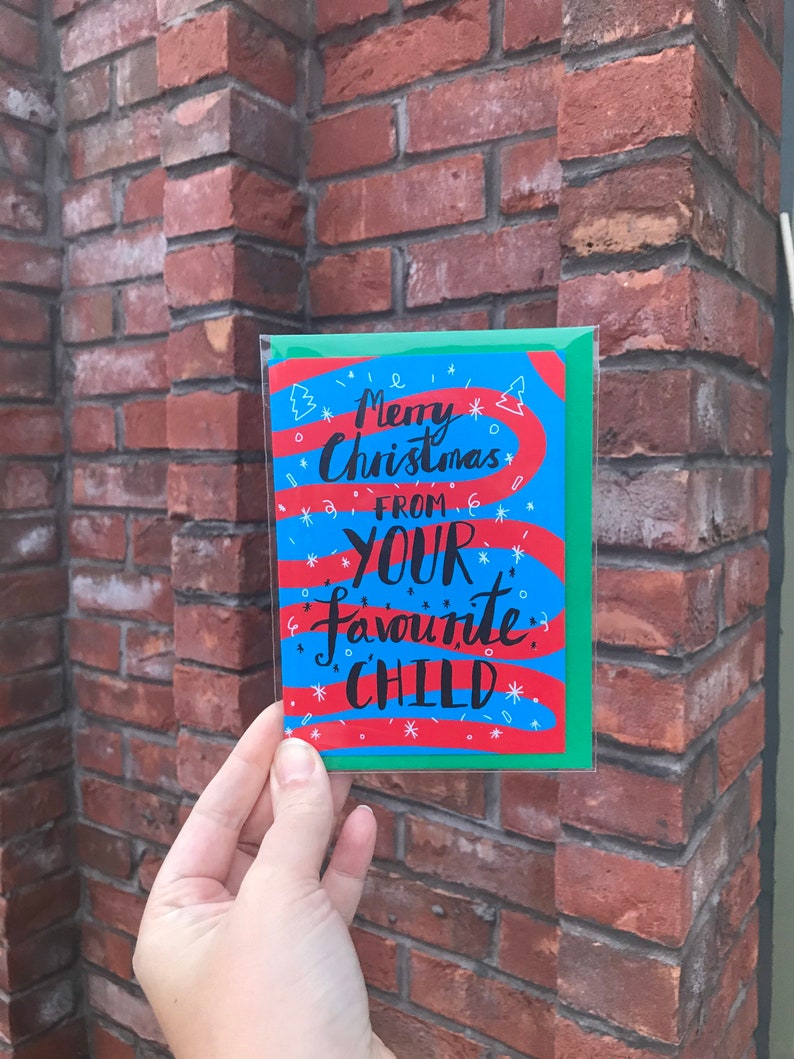 Merry
Christmas
FROM
YOUR
favourite
CHILD